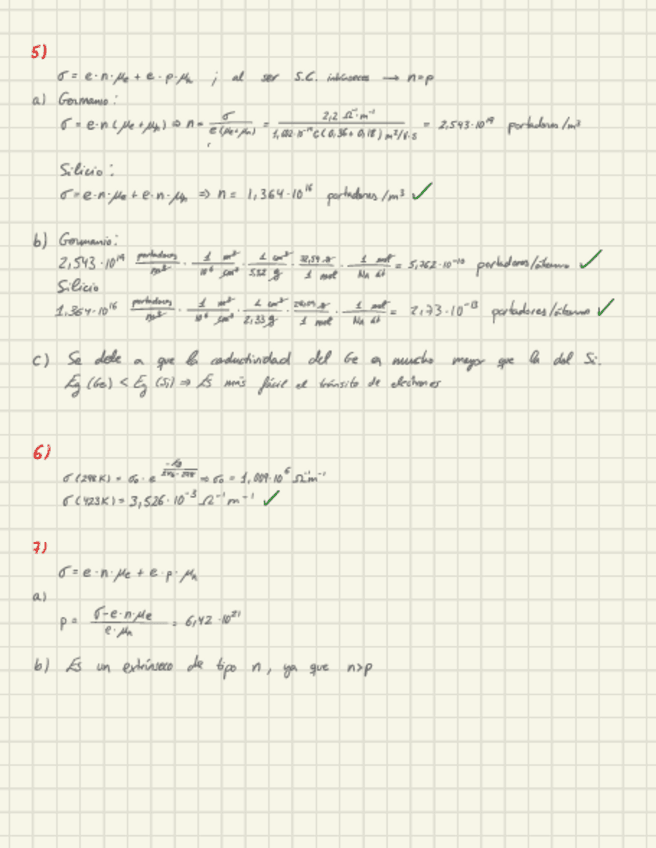 5)
σ = e·n·μe + e·p·μh ; al ser S.C. intrínseco → n=p
a) Germanio:
σ = e·n (μe+μh) ⇒ n = σ / e(μe+μh) = 2,2 Ω⁻¹·m⁻¹ / 1,602·10⁻¹⁹C (0,36+0,18) m²/V·s = 2,543·10¹⁹ portadores/m³
Silicio:
σ = e·n·μe + e·n·μh ⇒ n = 1,364·10¹⁶ portadores/m³ ✓
b) Germanio:
2,543·10¹⁹ portadores/m³ · 1 m³/10⁶ cm³ · 1 cm³/5,32 g · 72,59 g/1 mol · 1 mol/NA át = 5,762·10⁻¹⁰ portadores/átomo ✓
Silicio
1,364·10¹⁶ portadores/m³ · 1 m³/10⁶ cm³ · 1 cm³/2,33 g · 28,09 g/1 mol · 1 mol/NA át = 2,73·10⁻¹³ portadores/átomo ✓
c) Se debe a que la conductividad del Ge es mucho mayor que la del Si.
Eg (Ge) < Eg (Si) ⇒ Es más fácil el tránsito de electrones
6)
σ(298K) = σ₀ · e ⇒ σ₀ = 1,009·10⁶ Ω⁻¹m⁻¹
σ(423K) = 3,526·10⁻³ Ω⁻¹m⁻¹ ✓
7)
σ = e·n·μe + e·p·μh
a)
p = σ-e·n·μe / e·μh = 6,42·10²¹
b) Es un extrínseco de tipo n, ya que n>p